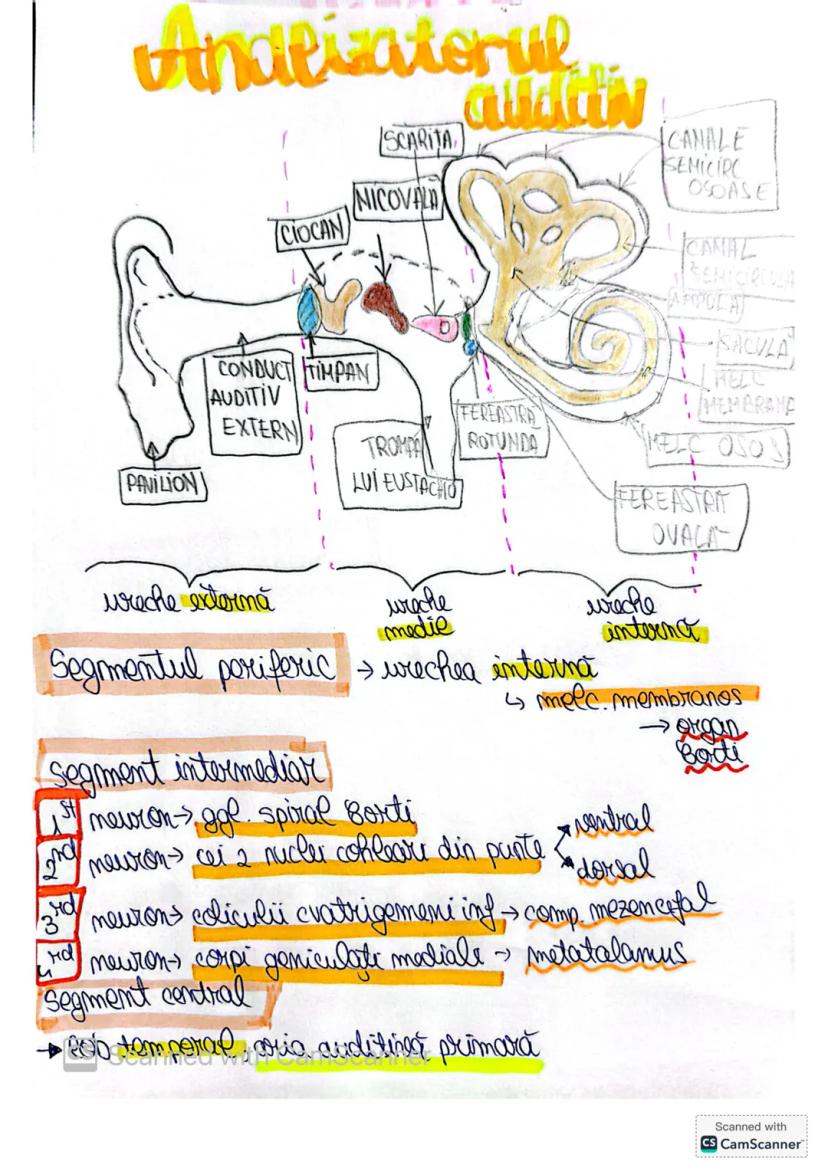 Analizatorul
auditiv
SCARIȚA
CANALE
SEMICIRC
OSOASE
NICOVALĂ
CIOCAN
CANAL
SEMICIRCULA
AMPULA
SACULA
MELC
MEMBRANA
MELC OSOS
CONDUCT
AUDITIV
EXTERN
TIMPAN
FEREASTRA
ROTUNDA
TROMPA
LUI EUSTACHIO
PAVILION
FEREASTRA
OVALĂ
ureche externă
ureche
medie
ureche
internă
Segmentul periferic → urechea internă
↳ melc. membranos
→ organ
Corti
Segment intermediar
1st neuron → ggl. spiral Corti
2rd neuron → cei 2 nuclei cohleari din punte
ventral
dorsal
3rd neuron → coliculii cvatrigemeni inf → comp. mezencefal
4rd neuron → corpi geniculați mediali → metatalamus
Segment central
→ lob temporal, aria auditivă primară
Scanned with CamScanner
Scanned with
CS CamScanner